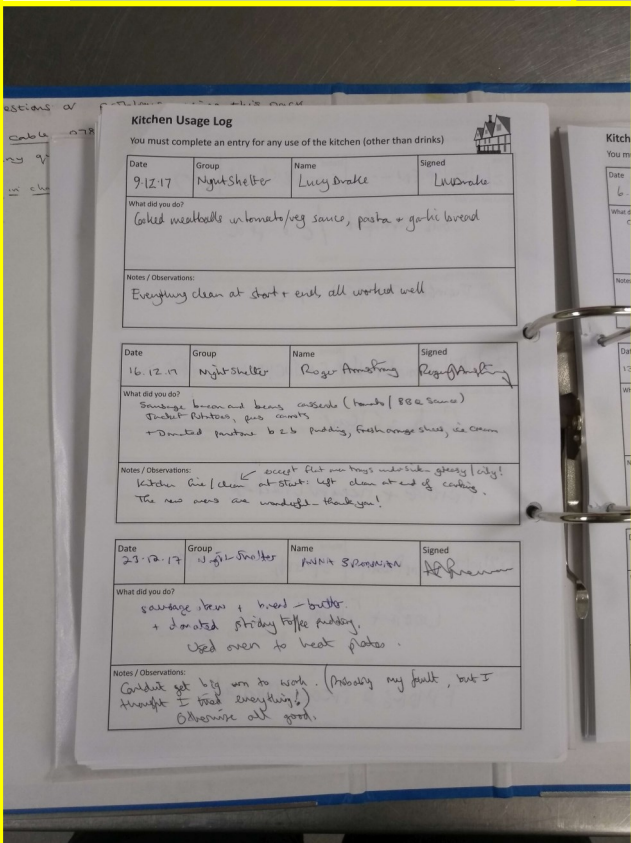 estions or
cable 078
ny q
in ch
Kitchen Usage Log
You must complete an entry for any use of the kitchen (other than drinks)
Date Group Name Signed
9.12.17 Nightshelter Lucy Drake LMDrake
What did you do?
Cooked meatballs in tomato/veg sauce, pasta + garlic bread
Notes / Observations:
Everything clean at start + end, all worked well
Date Group Name Signed
16.12.17 Night Shelter Roger Armstrong
What did you do?
Sausage bacon and beans casserole (tomato / BBQ sauce)
Jacket Potatoes, peas carrots
+ Donated panetone b + b pudding, fresh orange slices, ice cream
except flat oven trays under sink greasy/
Notes / Observations:
Kitchen fine / clean at start: left clean at end of cooking.
The new ovens are wonderful - thank you!
Date Group Name Signed
23.12.17 Night Shelter
What did you do?
sausage stew + bread - butter.
+ donated sticky toffee pudding.
Used oven to heat plates.
Notes / Observations:
Couldn't get big oven to work. (Probably my fault, but I
thought I tried everything!)
Otherwise all good.
Kitch
You m
Date
6.
What d
Notes
Dat